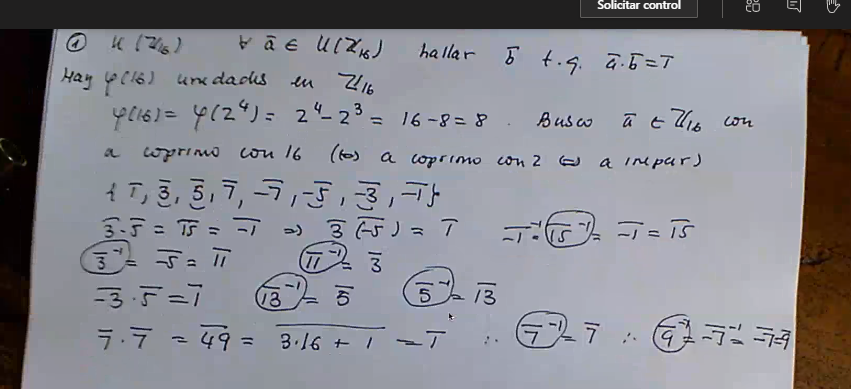 Solicitar control
① U(ℤ₁₆) ∀ ā ∈ U(ℤ₁₆) hallar b̄ t.q. ā·b̄=1̄
Hay φ(16) unidades en ℤ₁₆
φ(16) = φ(2⁴) = 2⁴-2³ = 16-8=8. Busco ā ∈ ℤ₁₆ con
a coprimo con 16 (⇔ a coprimo con 2 ⇔ a impar)
{1̄, 3̄, 5̄, 7̄, -7̄, -5̄, -3̄, -1̄}
3̄·5̄ = 15̄ = -1̄ ⇒ 3̄(-5̄) = 1̄ -1̄⁻¹=15̄⁻¹ = -1̄ = 15̄
3̄⁻¹ = -5̄ = 11̄ 11̄⁻¹ = 3̄
-3̄·5̄ = 1̄ 13̄⁻¹ = 5̄ 5̄⁻¹ = 13̄
7̄·7̄ = 49̄ = 3.16 + 1 = 1̄ ∴ 7̄⁻¹ = 7̄ ∴ 9̄⁻¹ = -7̄⁻¹ = -7̄=9̄